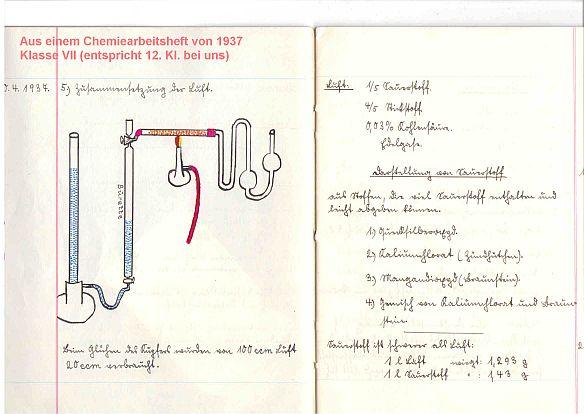 Aus einem Chemiearbeitsheft von 1937
Klasse VII (entspricht 12. Kl. bei uns)
.4.1937. 5) Zusammensetzung der Luft.
Bürette
Beim Glühen des Kupfers wurden von 100 ccm Luft
20 ccm verbraucht.
Luft: 1/5 Sauerstoff.
4/5 Stickstoff.
0,03% Kohlensäure.
Edelgase.
Darstellung von Sauerstoff
aus Stoffen, die viel Sauerstoff enthalten und
leicht abgeben können.
1) Quecksilberoxyd.
2) Kaliumchlorat (Zündhütchen).
3) Mangandioxyd (Braunstein).
4) Gemisch von Kaliumchlorat und Braun
stein.
Sauerstoff ist schwerer als Luft:
1 l Luft wiegt: 1,293 g
1 l Sauerstoff " : 1,43 g